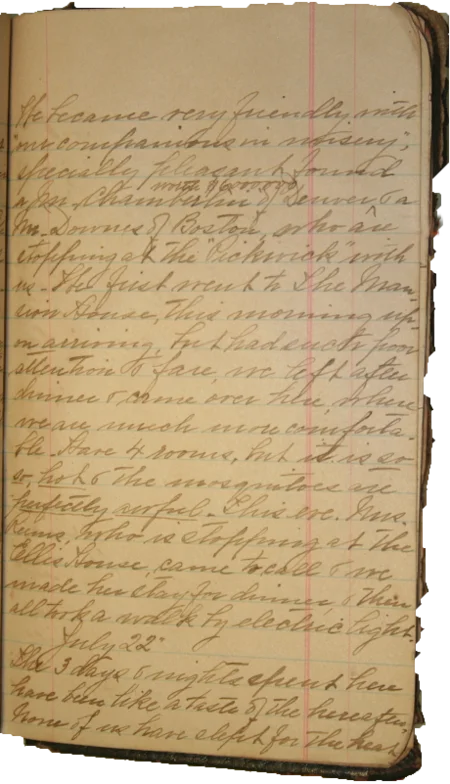 We became very friendly with
"our companions in misery",
specially pleasant found
worth $600,000
a Mr. Chamberlin of Denver, & a
Mr. Downes of Boston, who are
stopping at the "Pickwick" with
us. We first went to the Man-
sion House, this morning up-
on arriving, but had such poor
attention & fare, we left after
dinner & came over here, where
we are much more comforta-
ble. Have 4 rooms, but it is so
so, hot & the mosquitoes are
perfectly awful. This eve. Mrs.
who is stopping at the
Ellis House, came to call & we
made her stay for dinner, & then
all took a walk by electric light.
July 22"
The 3 days & nights spent here
have been like a taste of the hereafter,
None of us have slept for the heat